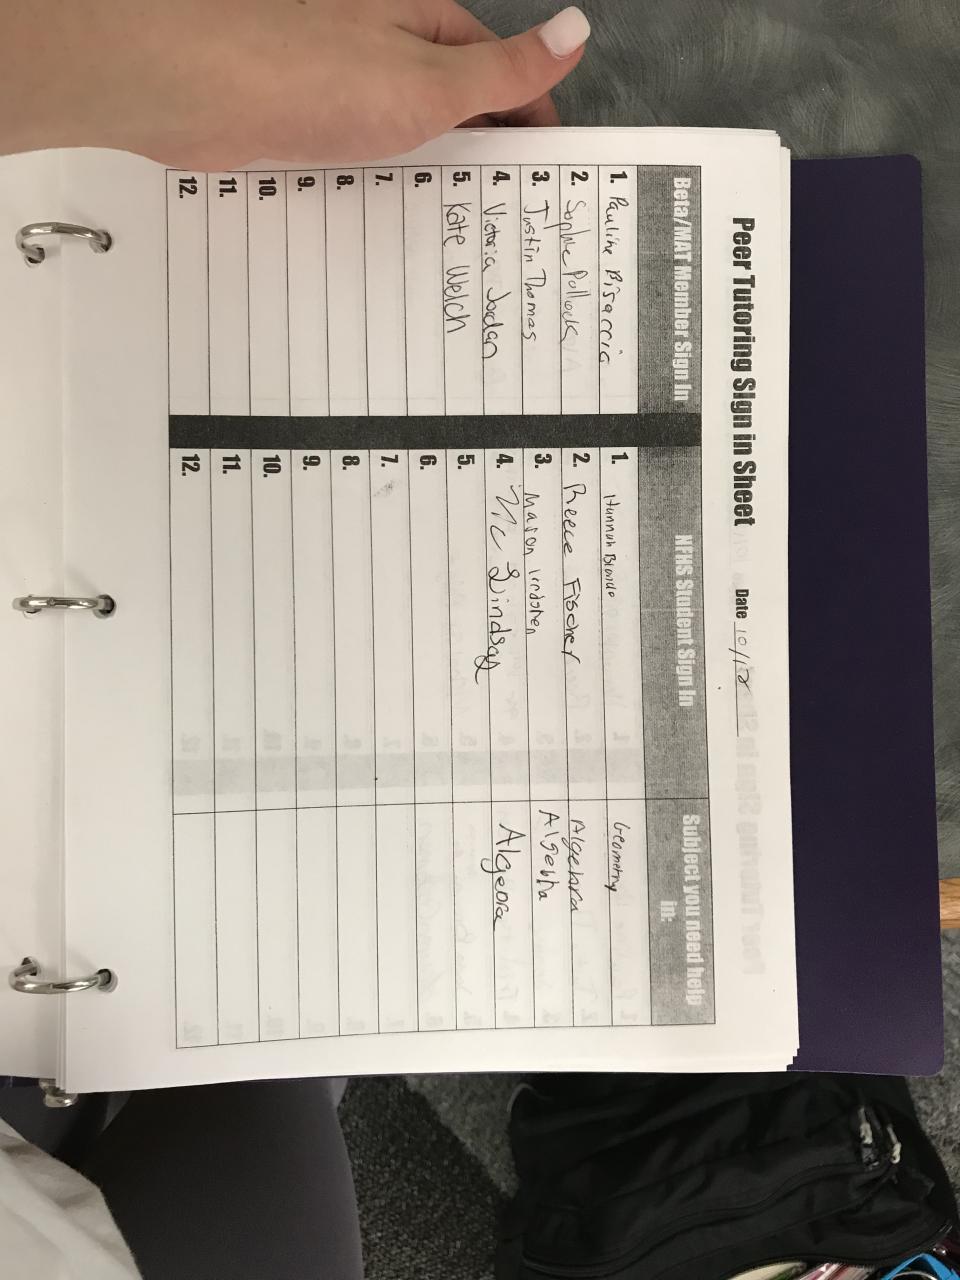 Peer Tutoring Sign in Sheet Date 10/12
Beta/MAT Member Sign In NFHS Student Sign In Subject you need help in:
1. Pauline Bisaccia 1. Hannah Geometry
2. Sophie Pollock 2. Reece Fischer Algebra
3. Justin Thomas 3. Mason Algebra
4. Victoria Jordan 4. Vic Lindsay Algebra
5. Kate Welch 5.
6. 6.
7. 7.
8. 8.
9. 9.
10. 10.
11. 11.
12. 12.